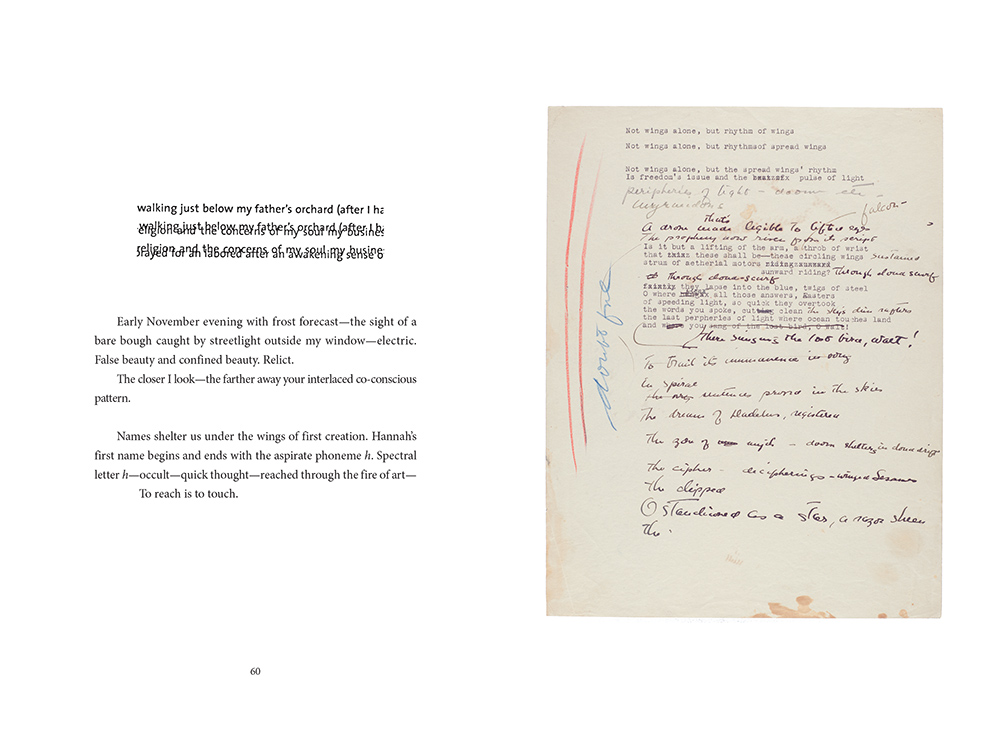 walking just below my father's orchard (after I ha
walking just below my father's orchard (after I b
eligion and the concerns of my soul my busines
religion and the concerns of my soul my busine
prayed for an labored after an awakening sense o
Early November evening with frost forecast—the sight of a
bare bough caught by streetlight outside my window—electric.
False beauty and confined beauty. Relict.
The closer I look—the farther away your interlaced co-conscious
pattern.
Names shelter us under the wings of first creation. Hannah's
first name begins and ends with the aspirate phoneme h. Spectral
letter h—occult—quick thought—reached through the fire of art—
To reach is to touch.
60
Not wings alone, but rhythm of wings
Not wings alone, but rhythmsof spread wings
Not wings alone, but the spread wings' rhythm
Is freedom's issue and the pulse of light
peripheries of light – doom
falcon-
that's
A drone made legible to lifted eyes
The prophecy now risen from its script
Is it but a lifting of the arm, a throb of wrist
that these shall be—these circling wings sustained
strum of aetherial motors riding sunward
sunward riding? Through cloud scurf
through cloud-scurf
faintly they lapse into the blue, twigs of steel
O where all those answers, Easters
of speeding light, so quick they overtook
the words you spoke, clean the sky's dim rafters
the last perpheries of light where ocean touches land
and you sang of the lost bird, O Walt!
There singing the lost bird, Walt!
double fre
To trail its immanence in song
In spiral
sentences in the skies
The dream of Daedelus, registered
The zone of – doom shelling in
The cipher – decipherings – winged Sesames
The clipped
O standioned as a star, a razor sheen
The